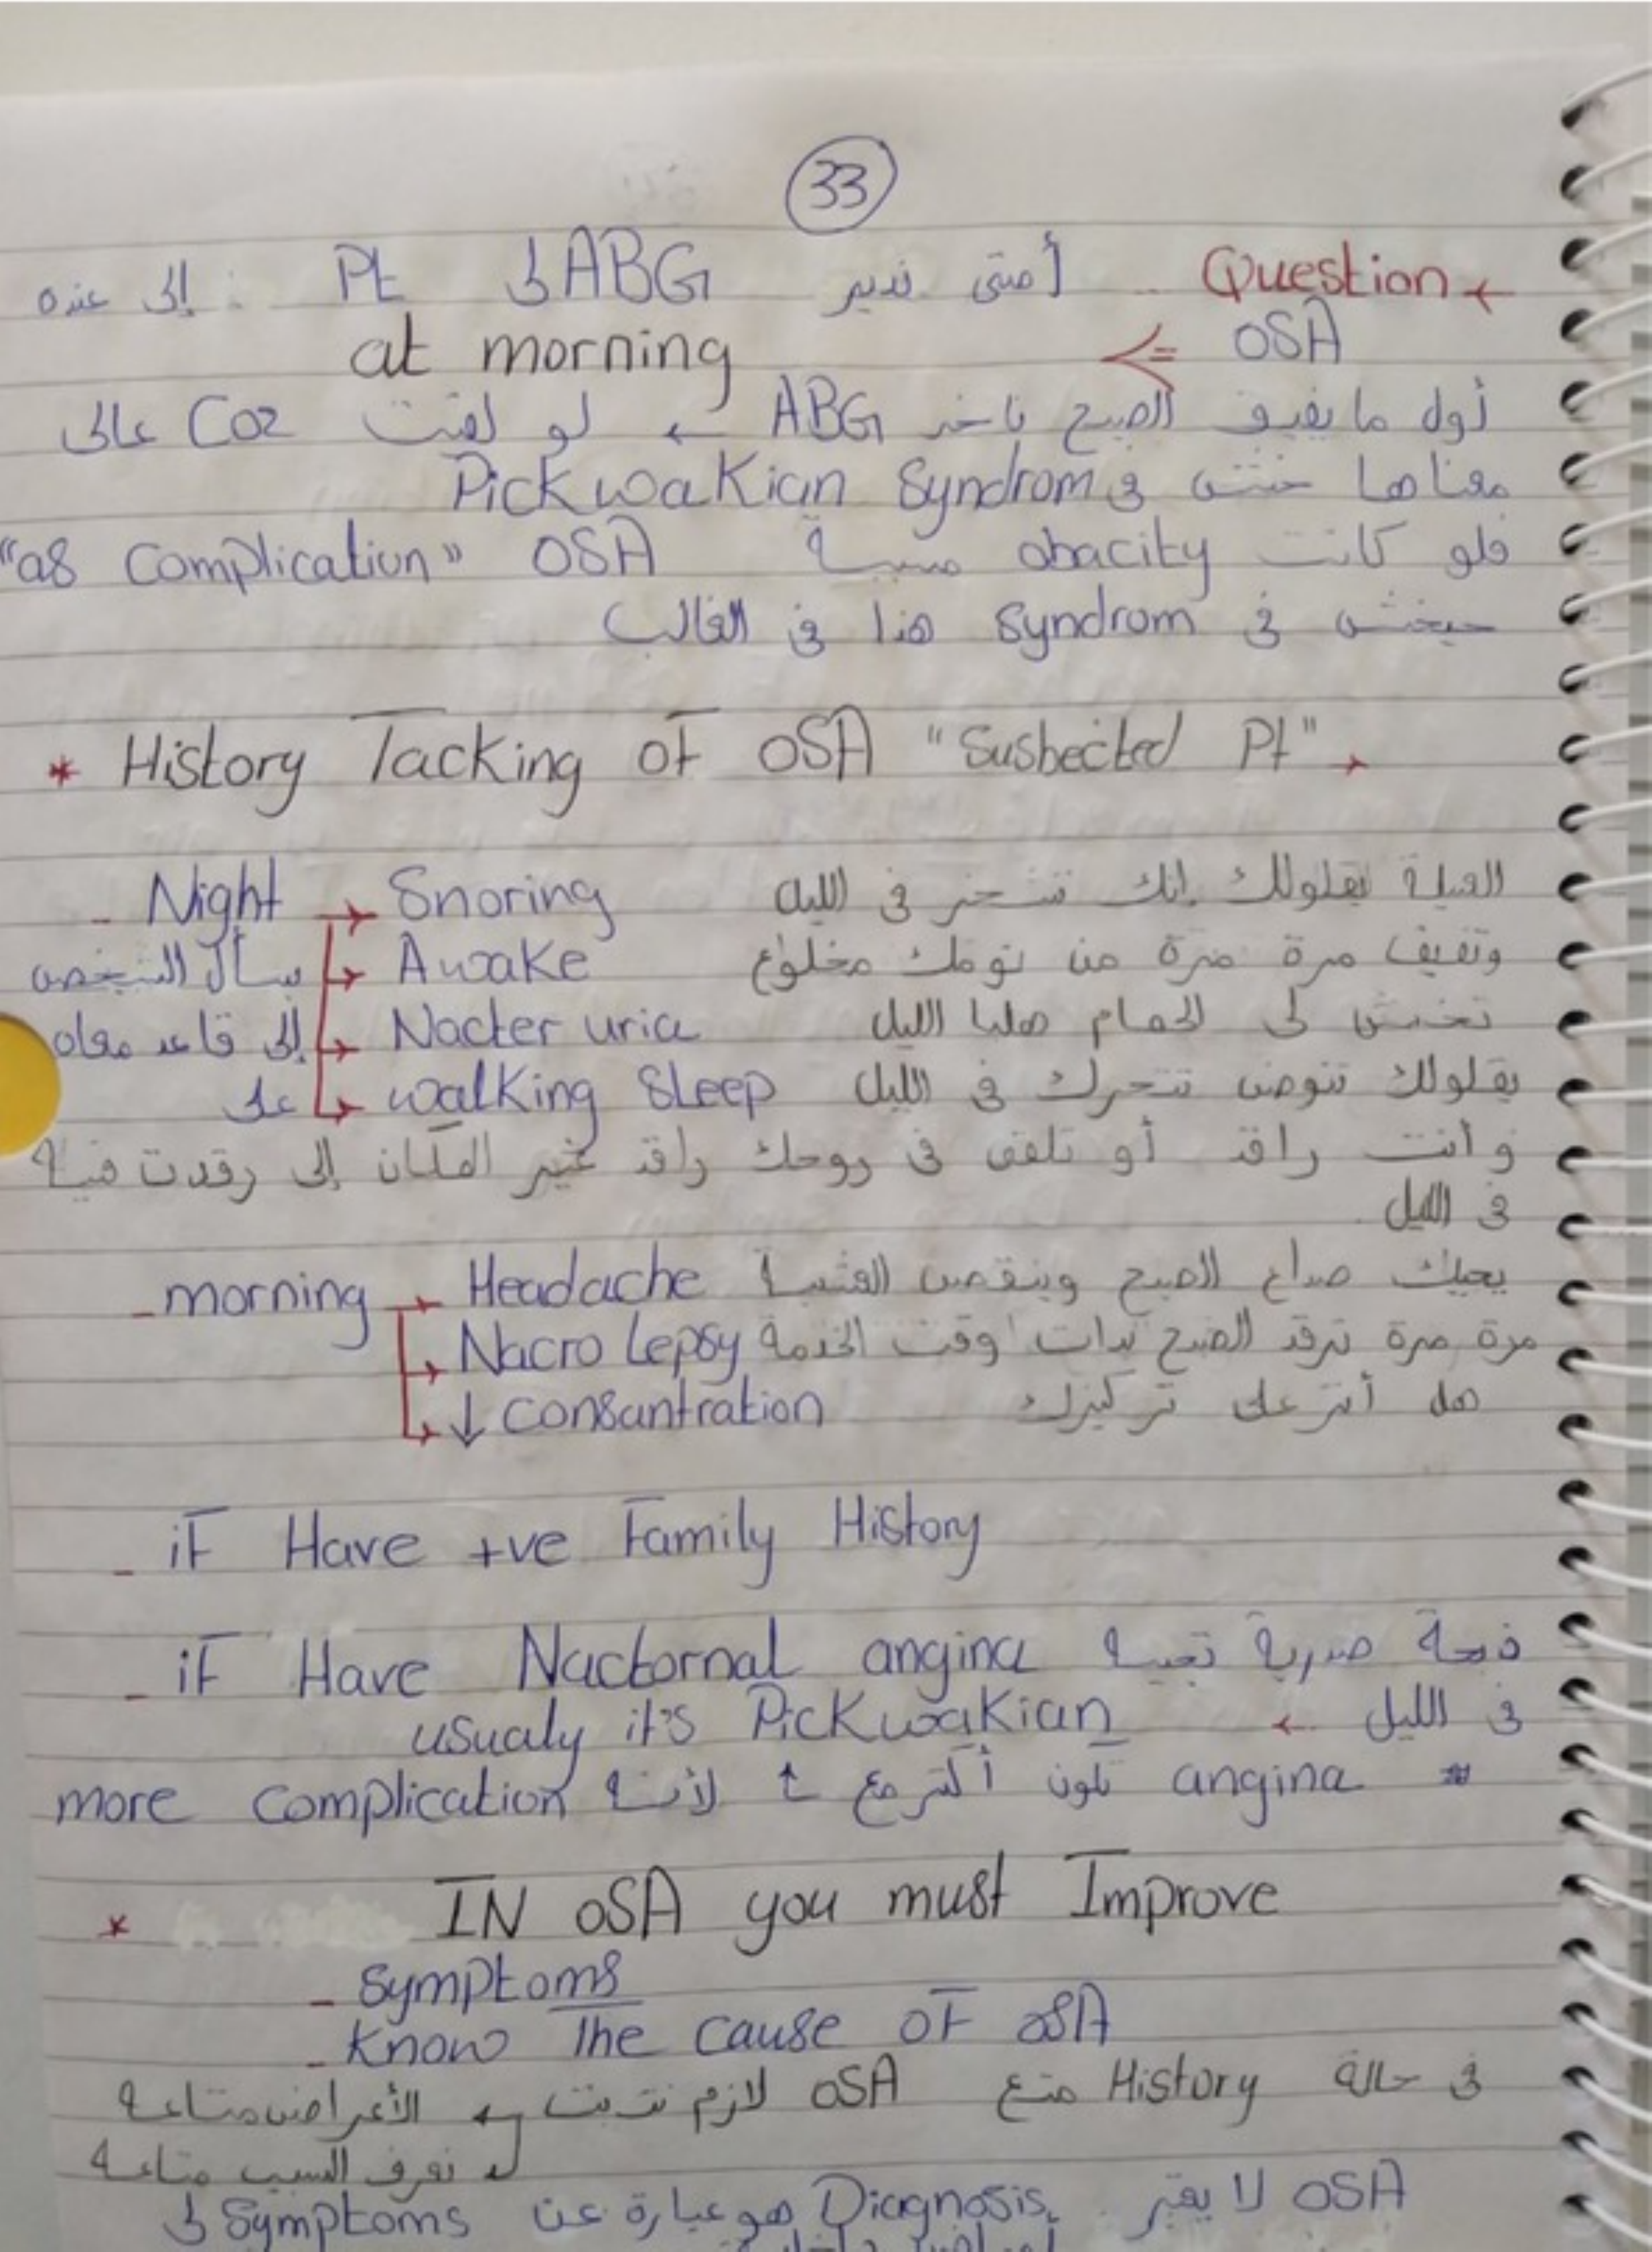 33
Question ← أمتى ندير ABG لى Pt إلى عنده
OSA ⇒ at morning
أول ما يفيق الصبح ناخد ABG ← لو لقيت Co2 عالى
معناها خش فى Pickwakian Syndrom
فلو كانت obacity مسببة OSA "as complication"
حيخش فى Syndrom هذا فى الغالب
* History Tacking of OSA "Susbected Pt"
- Night → Snoring العيلة يقلولك إنك تشخر فى الليل
يسأل الشخص → Awake وتفيف مرة مرة من نومك مخلوع
إلى قاعد معاه → Nacter uria تخش لى الحمام هلبا الليل
على → walking Sleep يقلولك تنوض تتحرك فى الليل
وأنت راقد أو تلقى فى روحك راقد غير المكان إلى رقدت فيه
فى الليل
- morning → Headache يجيك صداع الصبح وينقص العشية
→ Nacro Lepsy مرة مرة ترقد الصبح بدات وقت الخدمة
→ ↓ consantration هل أثر على تركيزك
- if Have +ve Family History
- if Have Nactornal angina ذبحة صدرية تجيه
فى الليل ← usualy it's Pickwakian
* angina تكون أكتر مع ↑ لأنه more complication
* IN OSA you must Improve
- Symptoms
- Know The cause of OSA
فى حالة History متع OSA لازم نتبت ← الأعراض متاعه
↳ نعرف السبب متاعه
OSA لا يعتبر Diagnosis هو عبارة عن Symptoms لى